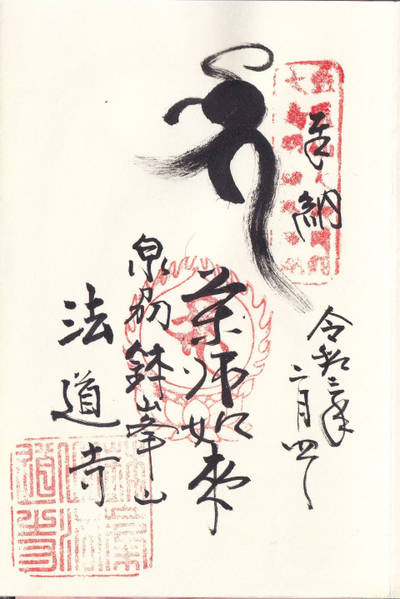 奉納
令和三年
二月四日
薬師如来
泉刕鉢峯山
法道寺